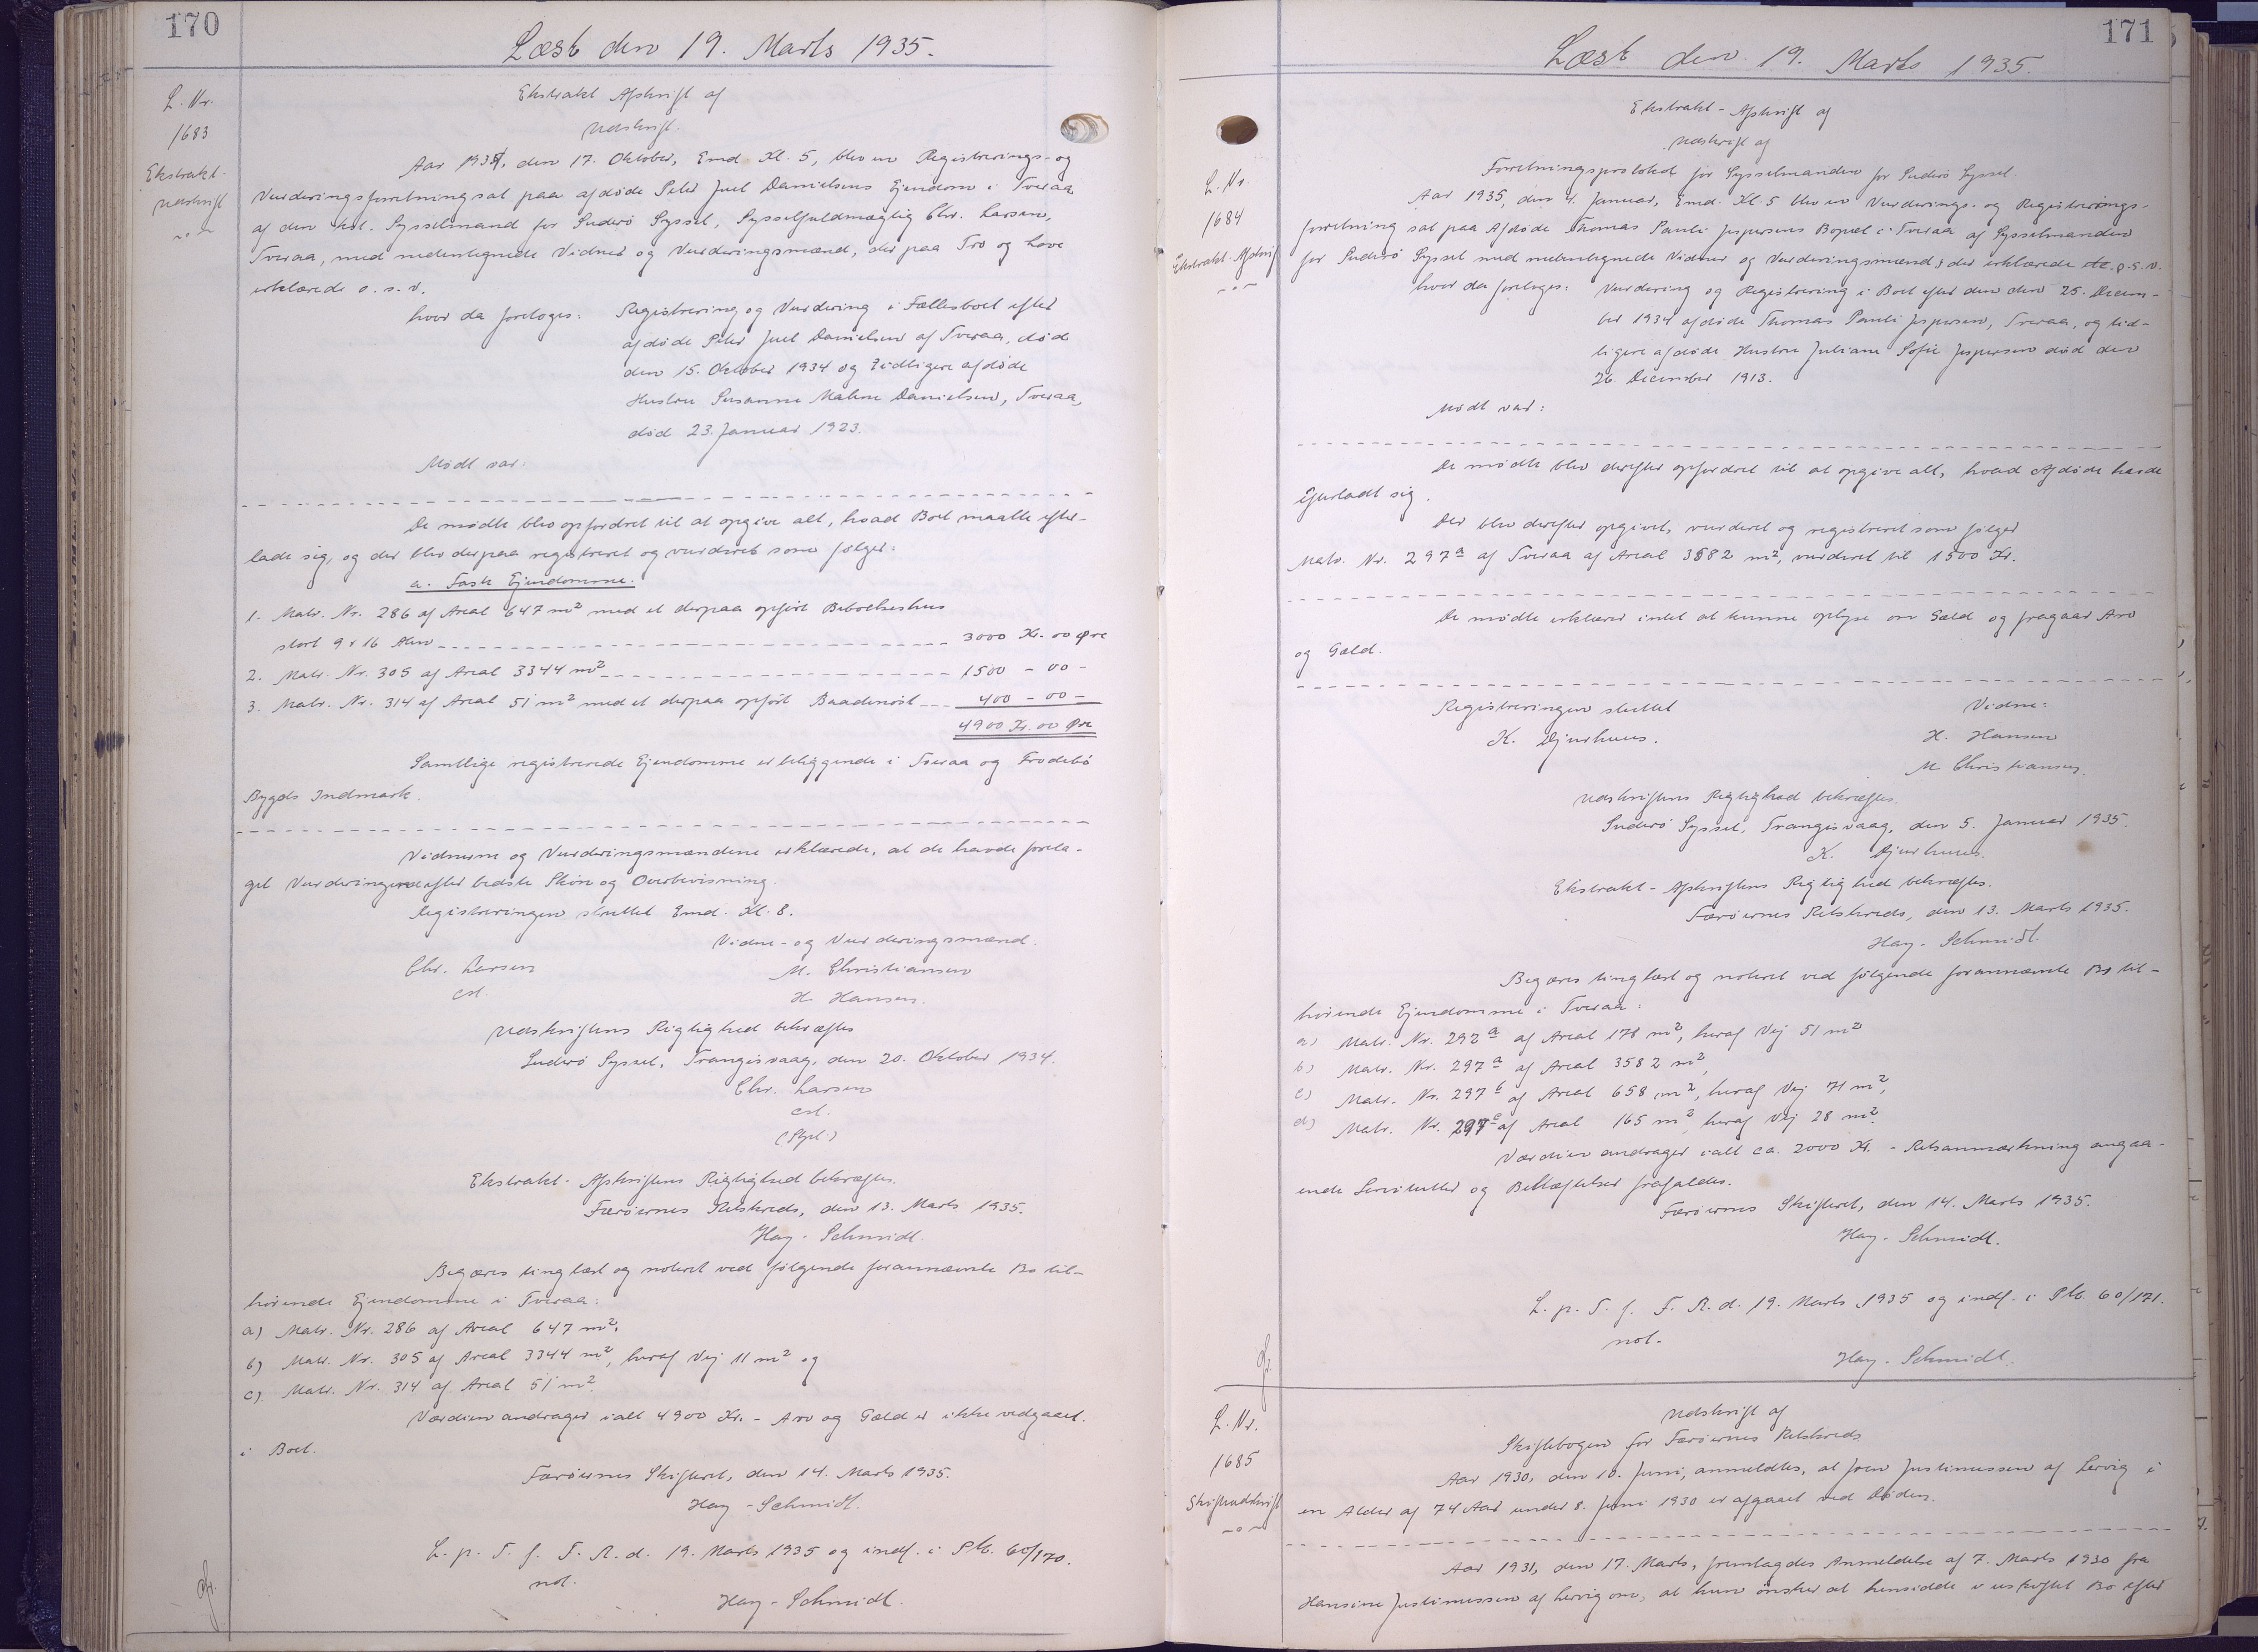 170
Læst den 19. Marts 1935.
L. Nr.
1683
Ekstrakt-
udskrift
Ekstrakt Afskrift af
Udskrift.
Aar 1934, den 17. Oktober, Emd. Kl. 5, blev en Registrerings- og
Vurderingsforretning sat paa afdøde Peter Juel Danielsens Ejendom i Tveraa
af den kst. Sysselmand for Suderø Syssel, Sysselfuldmægtig Chr. Larsen,
Tveraa, med nedentegnede Vidner og Vurderingsmænd, der paa Tro og Love
erklærede o. s. v.
hvor da foretoges: Registrering og Vurdering i Fællesboet efter
afdøde Peter Juel Danielsen af Tveraa, død
den 15. Oktober 1934 og tidligere afdøde
Hustru Susanne Malene Danielsen, Tveraa,
død 23. Januar 1923.
Mødt var:
De mødte blev opfordret til at opgive alt, hvad Boet maatte efter-
lade sig, og der blev derpaa registreret og vurderet som følger:
a. Faste Ejendomme.
1. Matr. Nr. 286 af Areal 647 m² med et derpaa opført Beboelseshus
stort 9 x 16 Alen 3000 Kr. 00 Øre
2. Matr. Nr. 305 af Areal 3344 m² 1500 - 00 -
3. Matr. Nr. 314 af Areal 51 m² med et derpaa opført Baadenøst 400 - 00 -
4900 Kr. 00 Øre
Samtlige registrerede Ejendomme er beliggende i Tveraa og Frodebø
Bygds Indmark.
Vidnerne og Vurderingsmændene erklærede, at de havde foreta-
get Vurderingerne efter bedste Skøn og Overbevisning.
Registreringen sluttet Emd. Kl. 8.
Vidne- og Vurderingsmænd.
Chr. Larsen M. Christiansen
cst. H. Hansen.
Udskriftens Rigtighed bekræftes
Suderø Syssel, Trangisvaag, den 20. Oktober 1934.
Chr. Larsen
cst.
(Sgl.)
Ekstrakt-Afskriftens Rigtighed bekræftes.
Færøernes Retskreds, den 13. Marts 1935.
Hay-Schmidt.
Begæres tinglæst og noteret ved følgende forannævnte Bo til-
hørende Ejendomme i Tveraa:
a) Matr. Nr. 286 af Areal 647 m²,
b) Matr. Nr. 305 af Areal 3344 m², heraf Vej 11 m² og
c) Matr. Nr. 314 af Areal 51 m².
Værdien andrager ialt 4900 Kr. - Arv og Gæld er ikke vedgaaet.
i Boet.
Færøernes Skifteret, den 14. Marts 1935.
Hay-Schmidt.
L. p. T. f. F. R. d. 19. Marts 1935 og indf. i Ptk. 60/170.
not.
Hay-Schmidt.
171
Læst den 19. Marts 1935.
L. Nr.
1684
Ekstrakt-Afskrift
Ekstrakt-Afskrift af
Udskrift af
Forretningsprotokol for Sysselmanden for Suderø Syssel.
Aar 1935, den 4. Januar, Emd. Kl. 5 blev en Vurderings- og Registrerings-
forretning sat paa Afdøde Thomas Pauli Jespersens Bopæl i Tveraa af Sysselmanden
for Suderø Syssel med nedentegnede Vidner og Vurderingsmænd, der erklærede o. s. v.
hvor da foretoges: Vurdering og Registrering i Boet efter den den 25. Decem-
ber 1934 afdøde Thomas Pauli Jespersen, Tveraa, og tid-
ligere afdøde Hustru Juliane Sofie Jespersen død den
26. December 1913.
Mødt var:
De mødte blev derefter opfordret til at opgive alt, hvad Afdøde havde
efterladt sig.
Der blev derefter opgivet, vurderet og registreret som følger
Matr. Nr. 297ª af Tveraa af Areal 3582 m², vurderet til 1500 Kr.
De mødte erklærer intet at kunne oplyse om Gæld og fragaar Arv
og Gæld.
Registreringen sluttet Vidne:
K. Djurhuus. H. Hansen
M. Christiansen.
Udskriftens Rigtighed bekræftes.
Suderø Syssel, Trangisvaag, den 5. Januar 1935.
K. Djurhuus.
Ekstrakt-Afskriftens Rigtighed bekræftes.
Færøernes Retskreds, den 13. Marts 1935.
Hay-Schmidt.
Begæres tinglæst og noteret ved følgende forannævnte Bo til-
hørende Ejendomme i Tveraa:
a) Matr. Nr. 292ª af Areal 178 m², heraf Vej 51 m²
b) Matr. Nr. 297ª af Areal 3582 m²,
c) Matr. Nr. 297ᵇ af Areal 658 m², heraf Vej 71 m²,
d) Matr. Nr. 297ᶜ af Areal 165 m², heraf Vej 28 m².
Værdien andrager ialt ca. 2000 Kr. - Retsanmærkning angaa-
ende Servitutter og Behæftelser frafaldes.
Færøernes Skifteret, den 14. Marts 1935.
Hay-Schmidt.
L. p. T. f. F. R. d. 19. Marts 1935 og indf. i Ptk. 60/171.
not.
Hay-Schmidt.
L. Nr.
1685
Skifteudskrift
Udskrift af
Skiftebogen for Færøernes Retskreds
Aar 1930, den 10. Juni, anmeldtes, at Joen Justinussen af Lervig i
en Alder af 74 Aar under 8. Juni 1930 er afgaaet ved Døden.
Aar 1931, den 17. Marts, fremlagdes Anmeldelse af 7. Marts 1930 fra
Hansine Justinussen af Lervig om, at hun ønsker at hensidde i uskiftet Bo efter